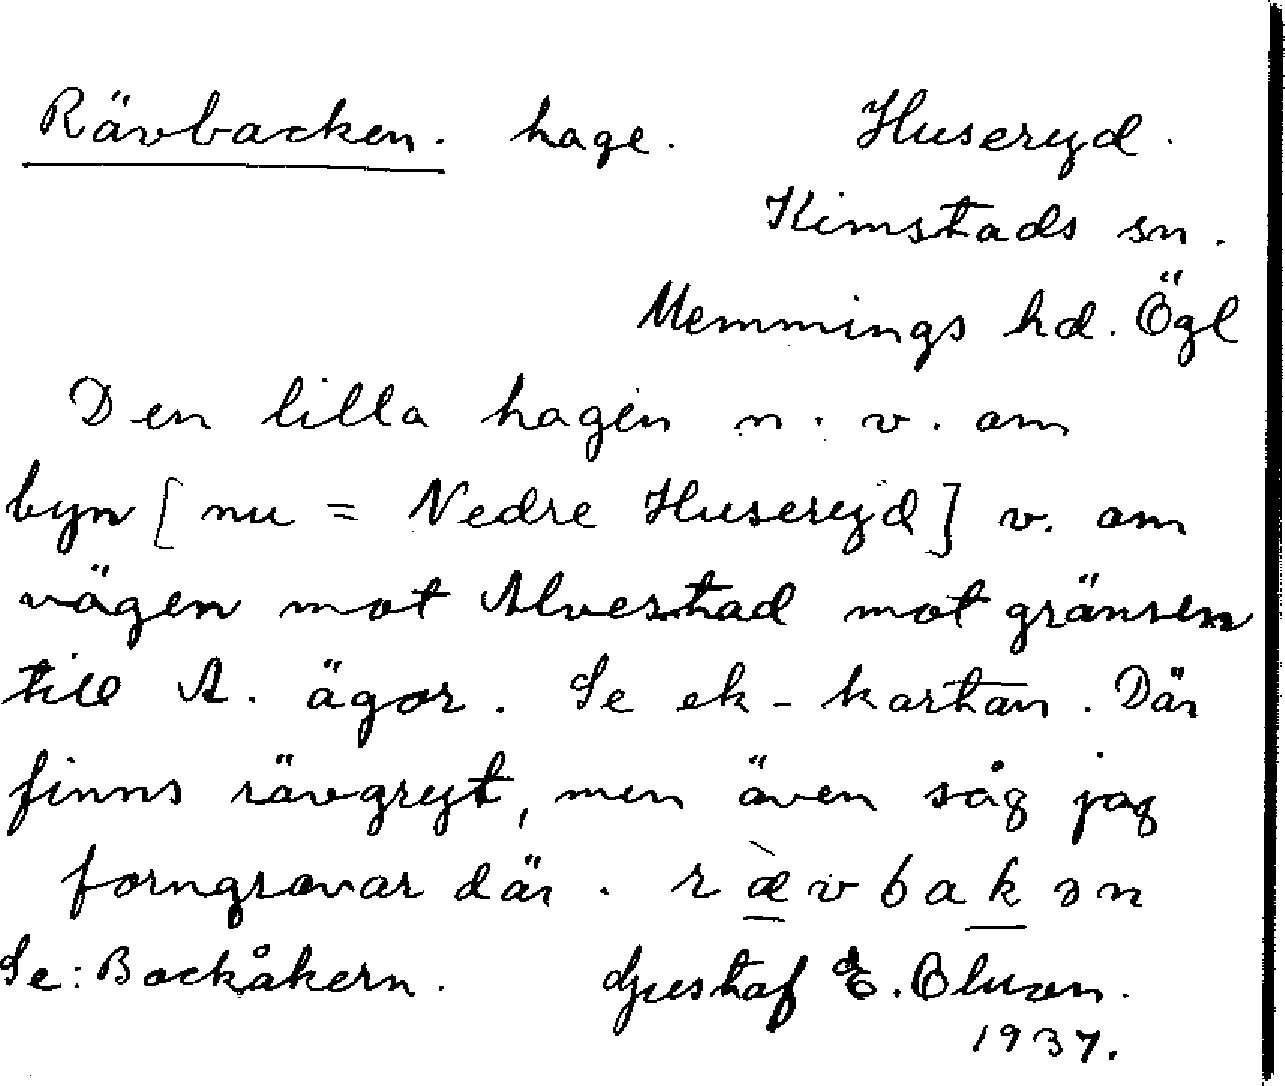 Rävbacken. hage. Huseryd.
Kimstads sn.
Memmings hd. Ögl
Den lilla hagen n. v. om
byn [nu = Nedre Huseryd] v. om
vägen mot Alvestad mot gränsen
till A. ägor. Se ek-kartan. Där
finns rävgryt, men även såg jag
forngravar där. ræ̀vbakən
Se: Bockåkern. Gustaf E. Olsson.
1937.